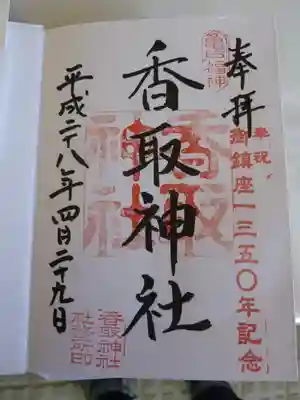 奉拝
奉祝
御鎮座一三五〇年記念
亀戸福神
香取神社
香取神社
平成二十八年四月二十九日
香取神社
社務所印